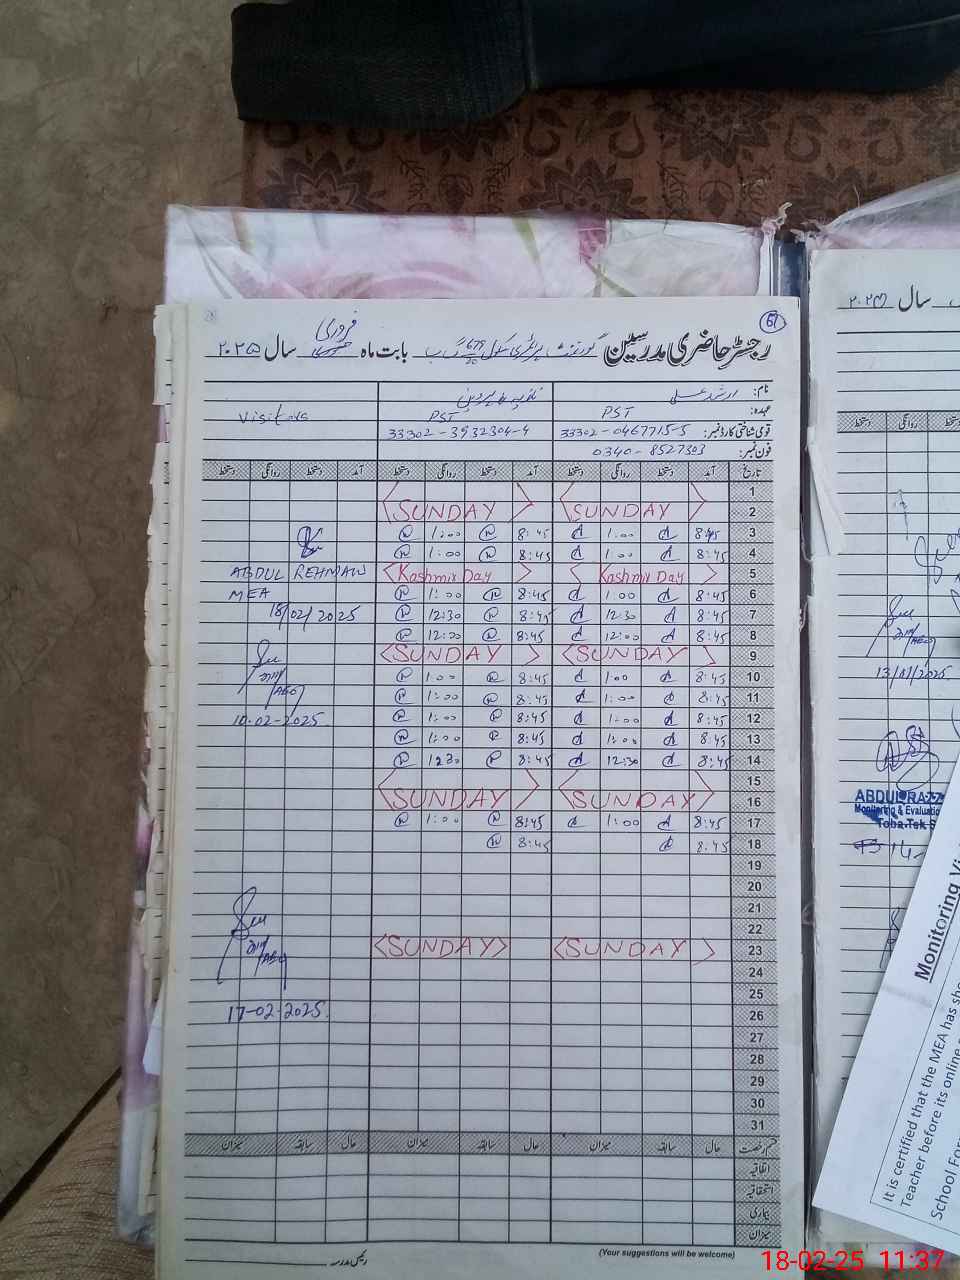 61
رجسٹر حاضری مدرسین گورنمنٹ پرائمری سکول 679/20 گ ب بابت ماہ فروری سال ۲۰۲۵
نام: ارشد علی
عہدہ: PST PST Visitors
قومی شناختی کارڈ نمبر: 33302-0467715-5 33302-3932304-4
فون نمبر: 0340-8527303
تاریخ آمد دستخط روانگی دستخط آمد دستخط روانگی دستخط آمد دستخط روانگی دستخط
1
2 SUNDAY SUNDAY
3 8:45 1:00 8:45 1:00
4 8:45 1:00 8:45 1:00
5 Kashmir Day Kashmir Day ABDUL REHMAN
6 8:45 1:00 8:45 1:00 MEA
7 8:45 12:30 8:45 12:30 18/02/2025
8 8:45 12:00 8:45 12:00
9 SUNDAY SUNDAY
10 8:45 1:00 8:45 1:00
11 8:45 1:00 8:45 1:00
12 8:45 1:00 8:45 1:00 10-02-2025
13 8:45 1:00 8:45 1:00
14 8:45 12:30 8:45 12:30
15
16 SUNDAY SUNDAY
17 8:45 1:00 8:45 1:00
18 8:45 8:45
19
20
21
22
23 SUNDAY SUNDAY
24
25
26 17-02-2025
27
28
29
30
31
قسم رخصت حال سابقہ میزان حال سابقہ میزان حال سابقہ میزان
اتفاقیہ
استحقاقیہ
بیماری
میزان
رئیس مدرسہ
(Your suggestions will be welcome)
سال ۲۰۲۴
دستخط روانگی
13/01/2025
ABDUL RAZZ
Monitoring & Evaluation
Toba Tek S
Monitoring Vi
It is certified that the MEA has sho
Teacher before its online
School For
18-02-25 11:37